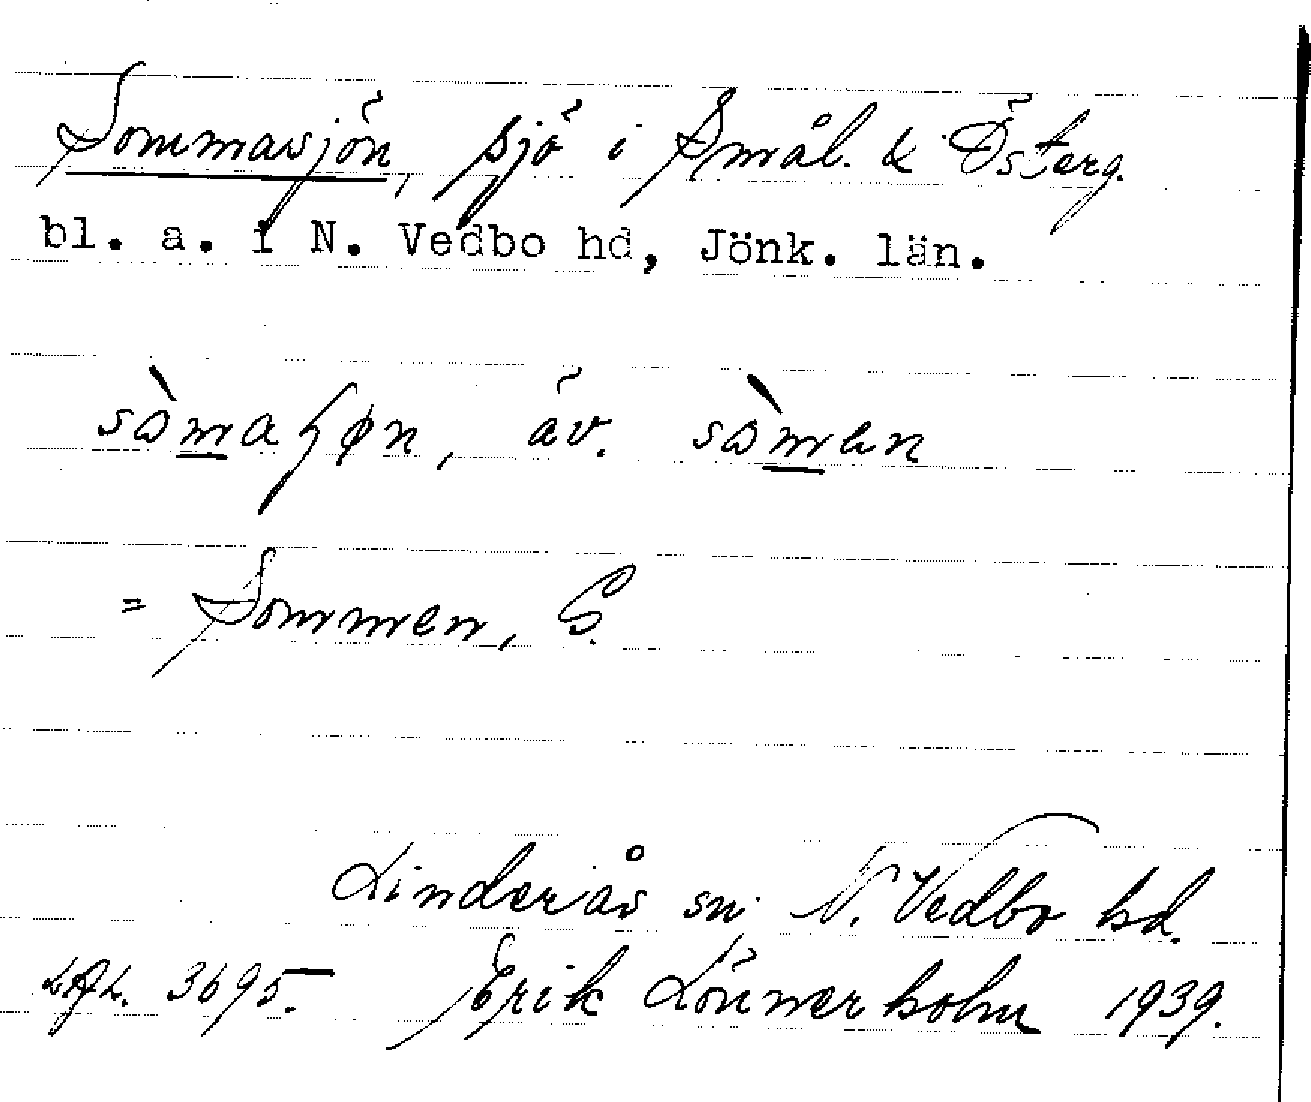 Sommasjön, sjö i Smål. & Österg.
bl. a. i N. Vedbo hd, Jönk. län.
sòmaʃøn, äv. sòmen
= Sommen, G.
Linderås sn, N. Vedbo hd.
3695. Erik Lönnerholm 1939.